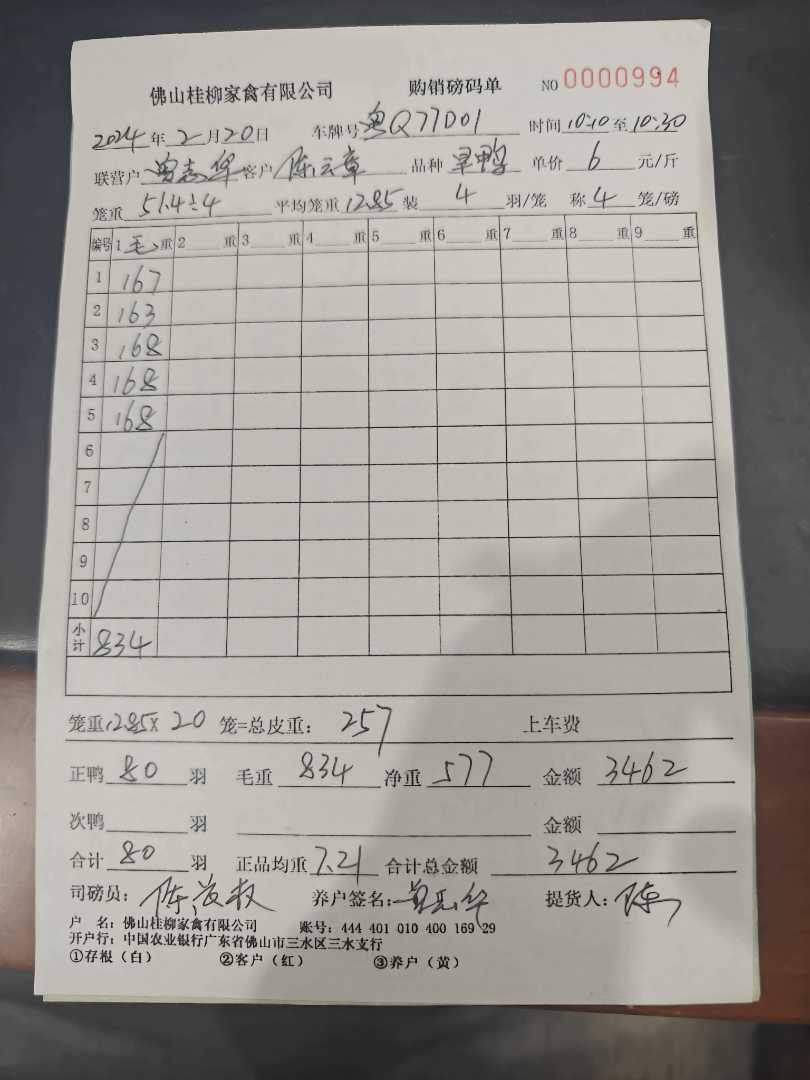 佛山桂柳家禽有限公司 购销磅码单 NO 0000994
2024年2月20日 车牌号粤Q77D01 时间10:10至10:30
联营户曾志华客户陈云章 品种旱鸭 单价6元/斤
笼重51.4÷4 平均笼重12.85装4羽/笼 称4笼/磅
编号 1毛重 2重 3重 4重 5重 6重 7重 8重 9重
1 167
2 163
3 168
4 168
5 168
6
7
8
9
10
小计 834
笼重12.85×20笼=总皮重：257 上车费
正鸭80羽 毛重834净重577 金额3462
次鸭羽 金额
合计80羽 正品均重7.21合计总金额3462
司磅员：陈 权 养户签名：曾志华 提货人：陈
户 名：佛山桂柳家禽有限公司 账号：444 401 010 400 169 29
开户行：中国农业银行广东省佛山市三水区三水支行
①存根（白） ②客户（红） ③养户（黄）